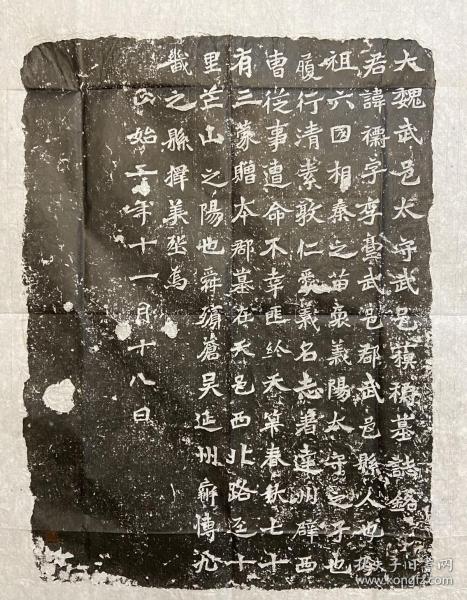 大魏武邑太守武邑蘇墓誌銘
君諱字季武邑郡武邑縣人也
祖六国相秦之苗裔義陽太守之子也
履行清素敦仁愛義名志著達州辟西
曹從事遭命不幸匪終夭筭春秋七十
有三蒙贈本郡墓在天邑西北路五十
里芒山之陽也舜殯蒼吴延州博
畿之縣擇美埊焉
正始二年十一月十八日
孔夫子旧书网
www.kongfz.com